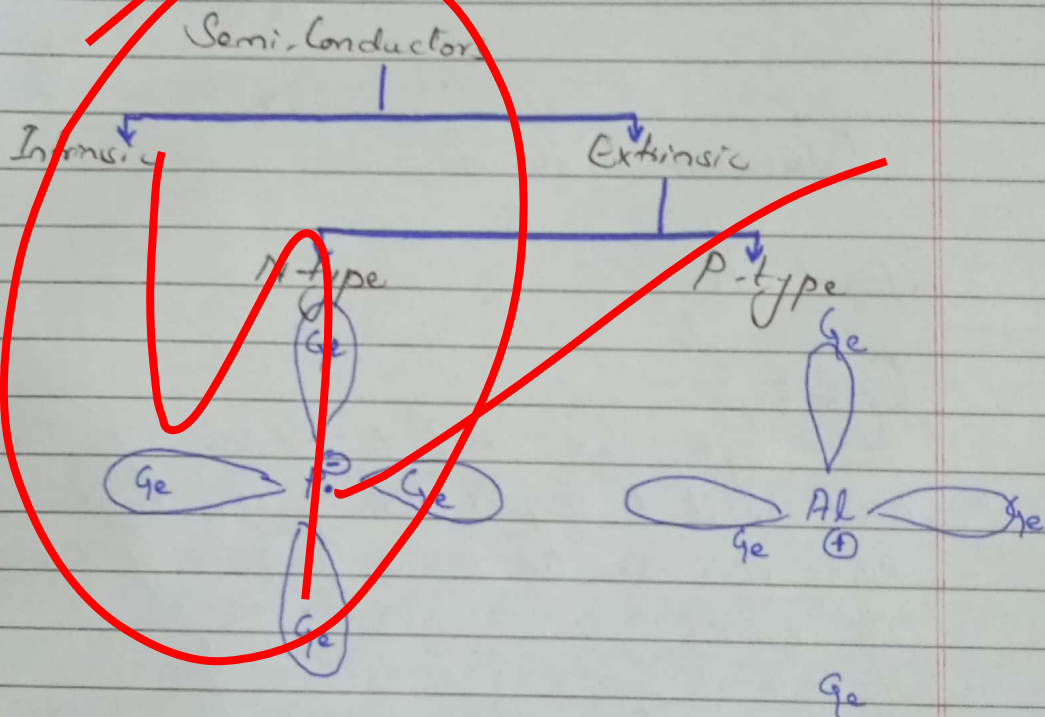 Semi-Conductors
Intrinsic Extrinsic
N-type P-type
Ge Ge
Ge Ge Al Ge
Ge
⊕
Ge
Ge